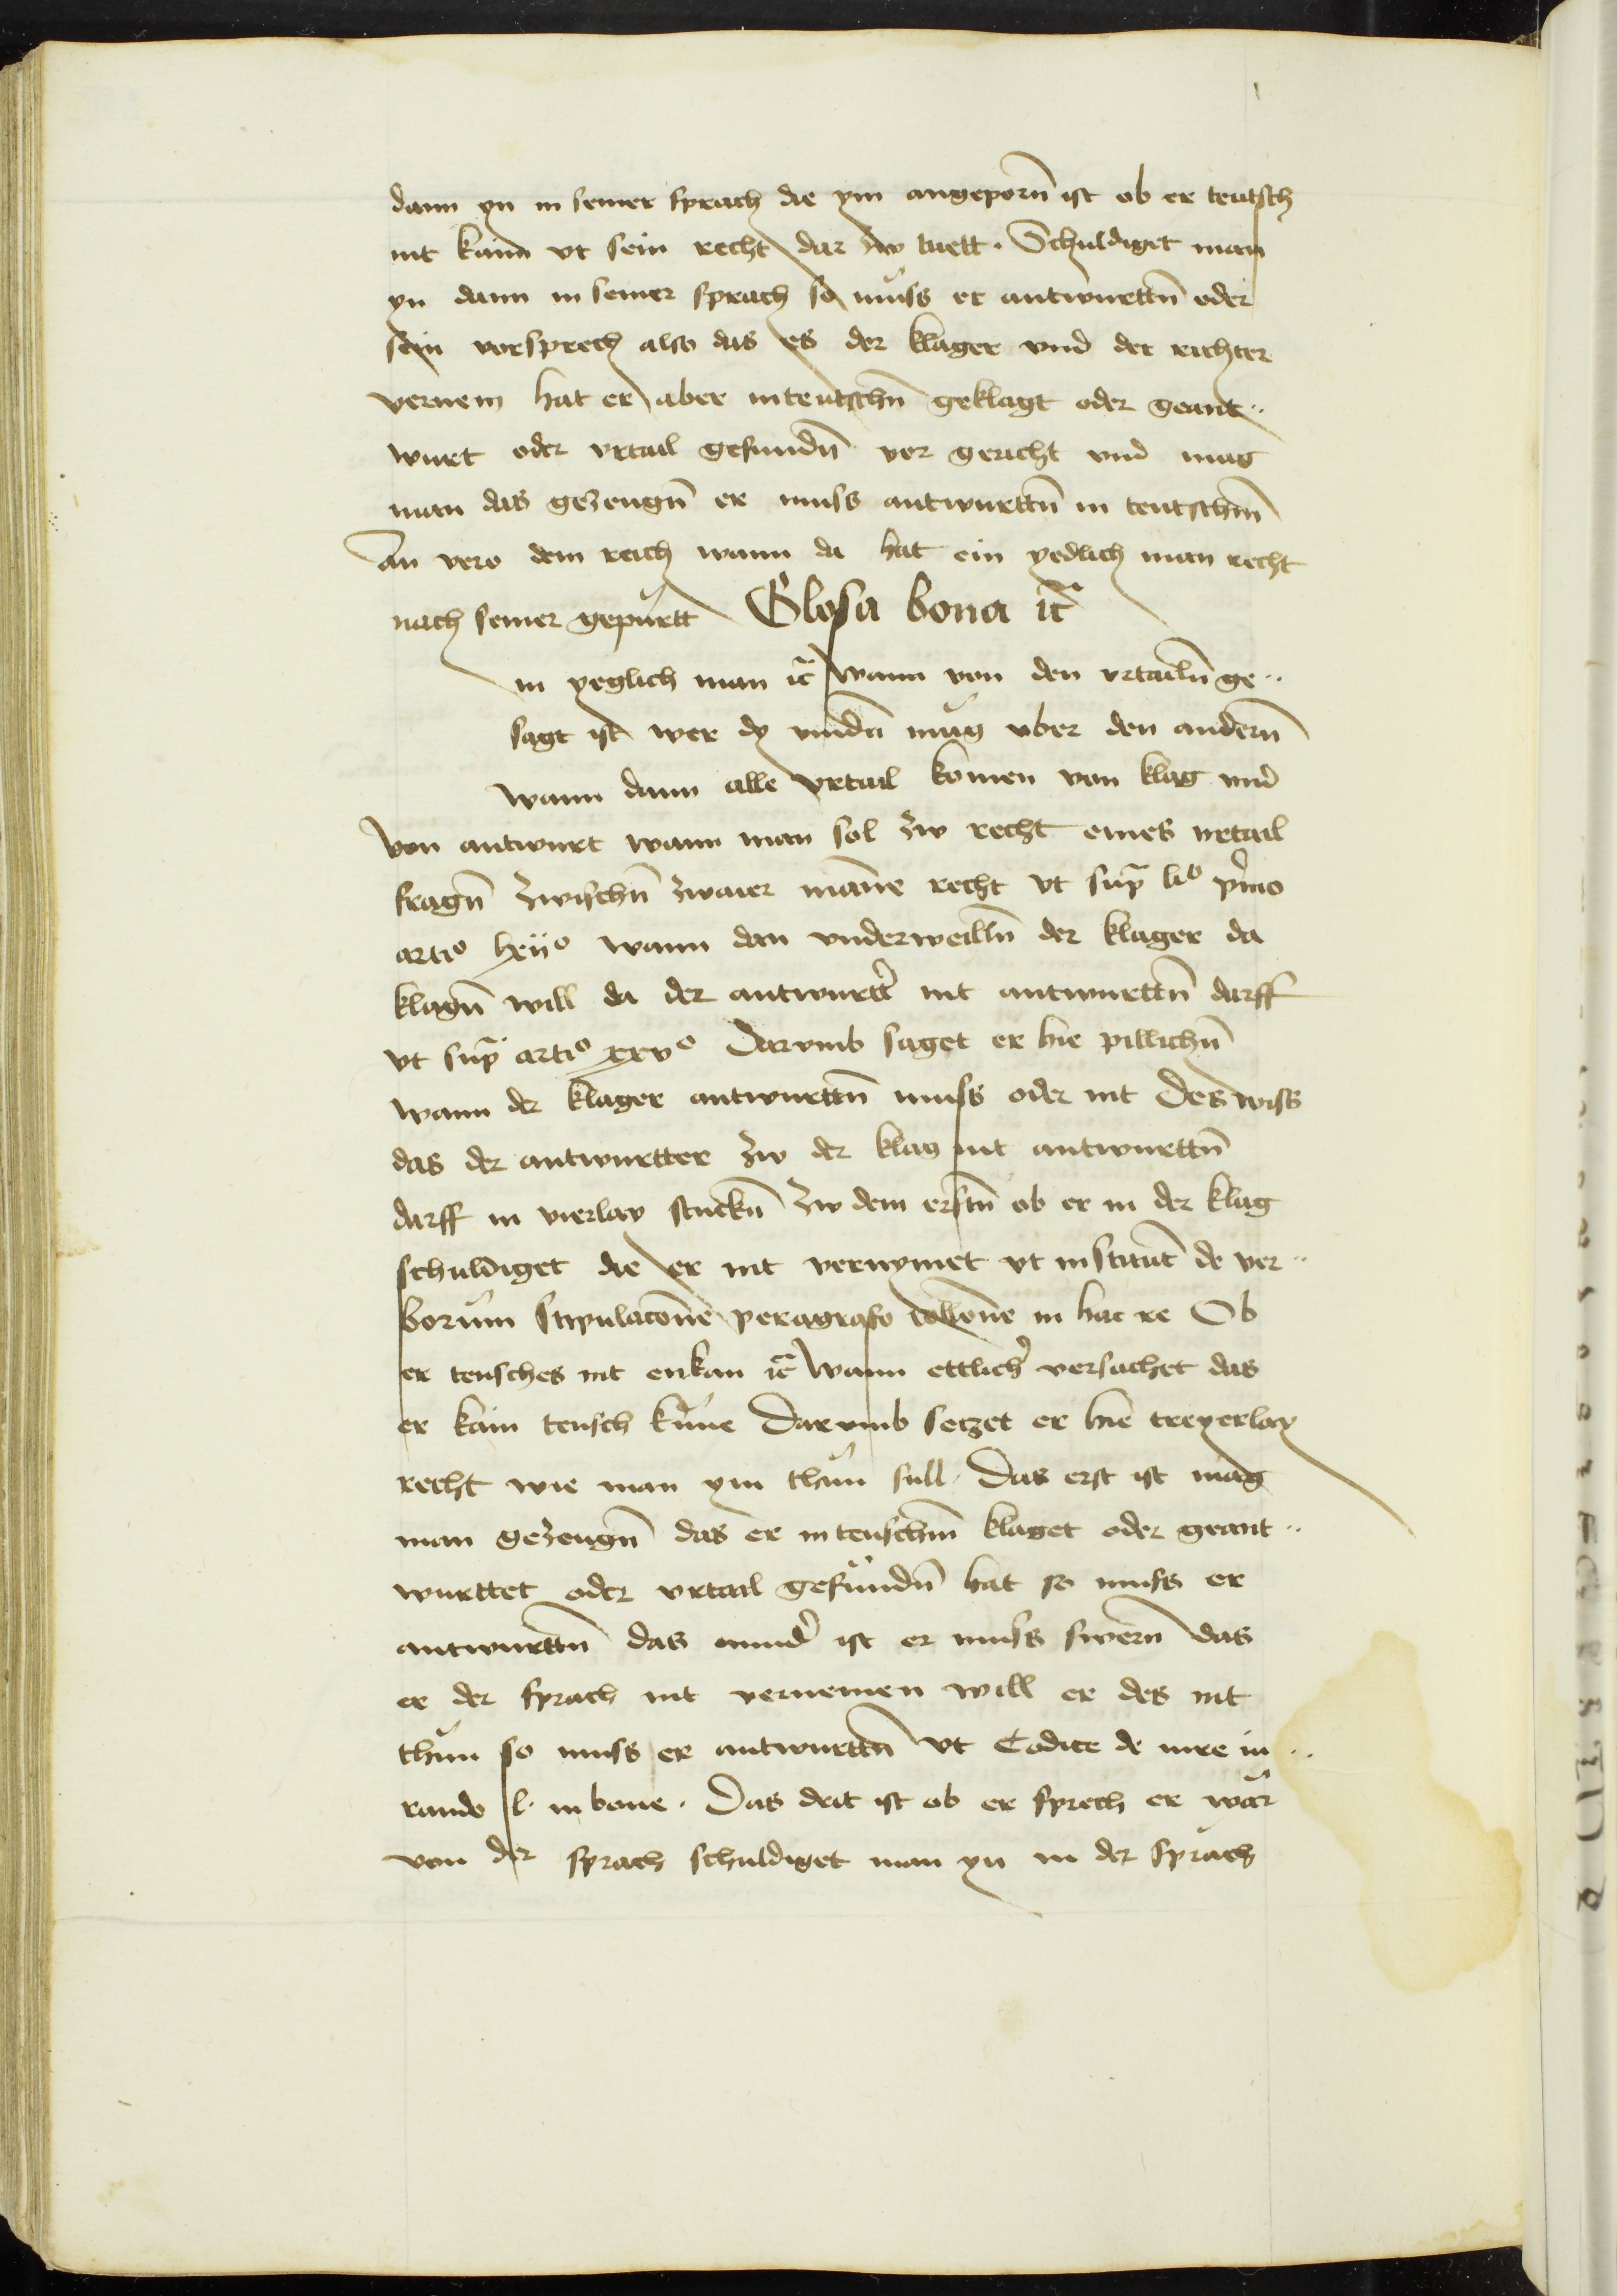 dann yn in seiner sprach die ym angeporn̄ ist ob er teutsch
nit kann vt sein recht dar zw tuett. Schuldiget man
yn dann in seiner sprach so můss er antwurttn̄ oder
sein vorsprech also das es der klager vnd der richter
vernem hat er aber in teutschn̄ geklagt oder geant..
wurt oder vrtail gefundn̄ vor gericht vnd mag
man das gezeugn̄ er muss antwurttn̄ in teutschm̄
An vero dem reich wann da hat ein yedlich man recht
nach seiner gepůrtt Glosa bona ic̄
in yeglich man ic̄ Wann von den vrtailn̄ ge..
sagt ist wer dy vindn̄ můg vber den andern̄
Wann dann alle vrtail komen von klag vnd
von antwurt wann man sol zw recht eines vrtail
fragn̄ zwischn̄ zwaier mańe recht vt sup̄ liº p̄mo
artiº lxiiº wann dan vnderweilln̄ der klager da
klagn̄ will da der antwurtt̄ nit antwurttn̄ darff
vt sup̄ artiº xxvº Darumb saget er hie pillichn̄
wann der klager antwurttn̄ muss oder nit Des wiss
das der antwurtter zw der klag nit antwurttn̄
darff in vierlay stuckn̄ zw dem erstn̄ ob er in der klag
schuldiget die er nit vernymet vt institut̄ de ver..
borum stipulacōne peragrafo in hac re Ob
er teusches nit enkan ic̄ Wann ettlich̄ versachet das
er kain teusch kůne Darumb setzet er hie treyerlay
recht wie man ym thun sull. Das erst ist mag
man gezeugn̄ das er in teuschm̄ klaget oder geant..
wurttet oder vrtail gefůndn̄ hat so muss er
antwurttn̄ das annd̄ ist er muss swern̄ das
er der sprach nit vernemen will er des nit
thun so muss er antwurttn̄ vt Codice de iure iu..
rando l. in bone. Das drit ist ob er sprech er wär
von der sprach schuldiget man yn in der sprach